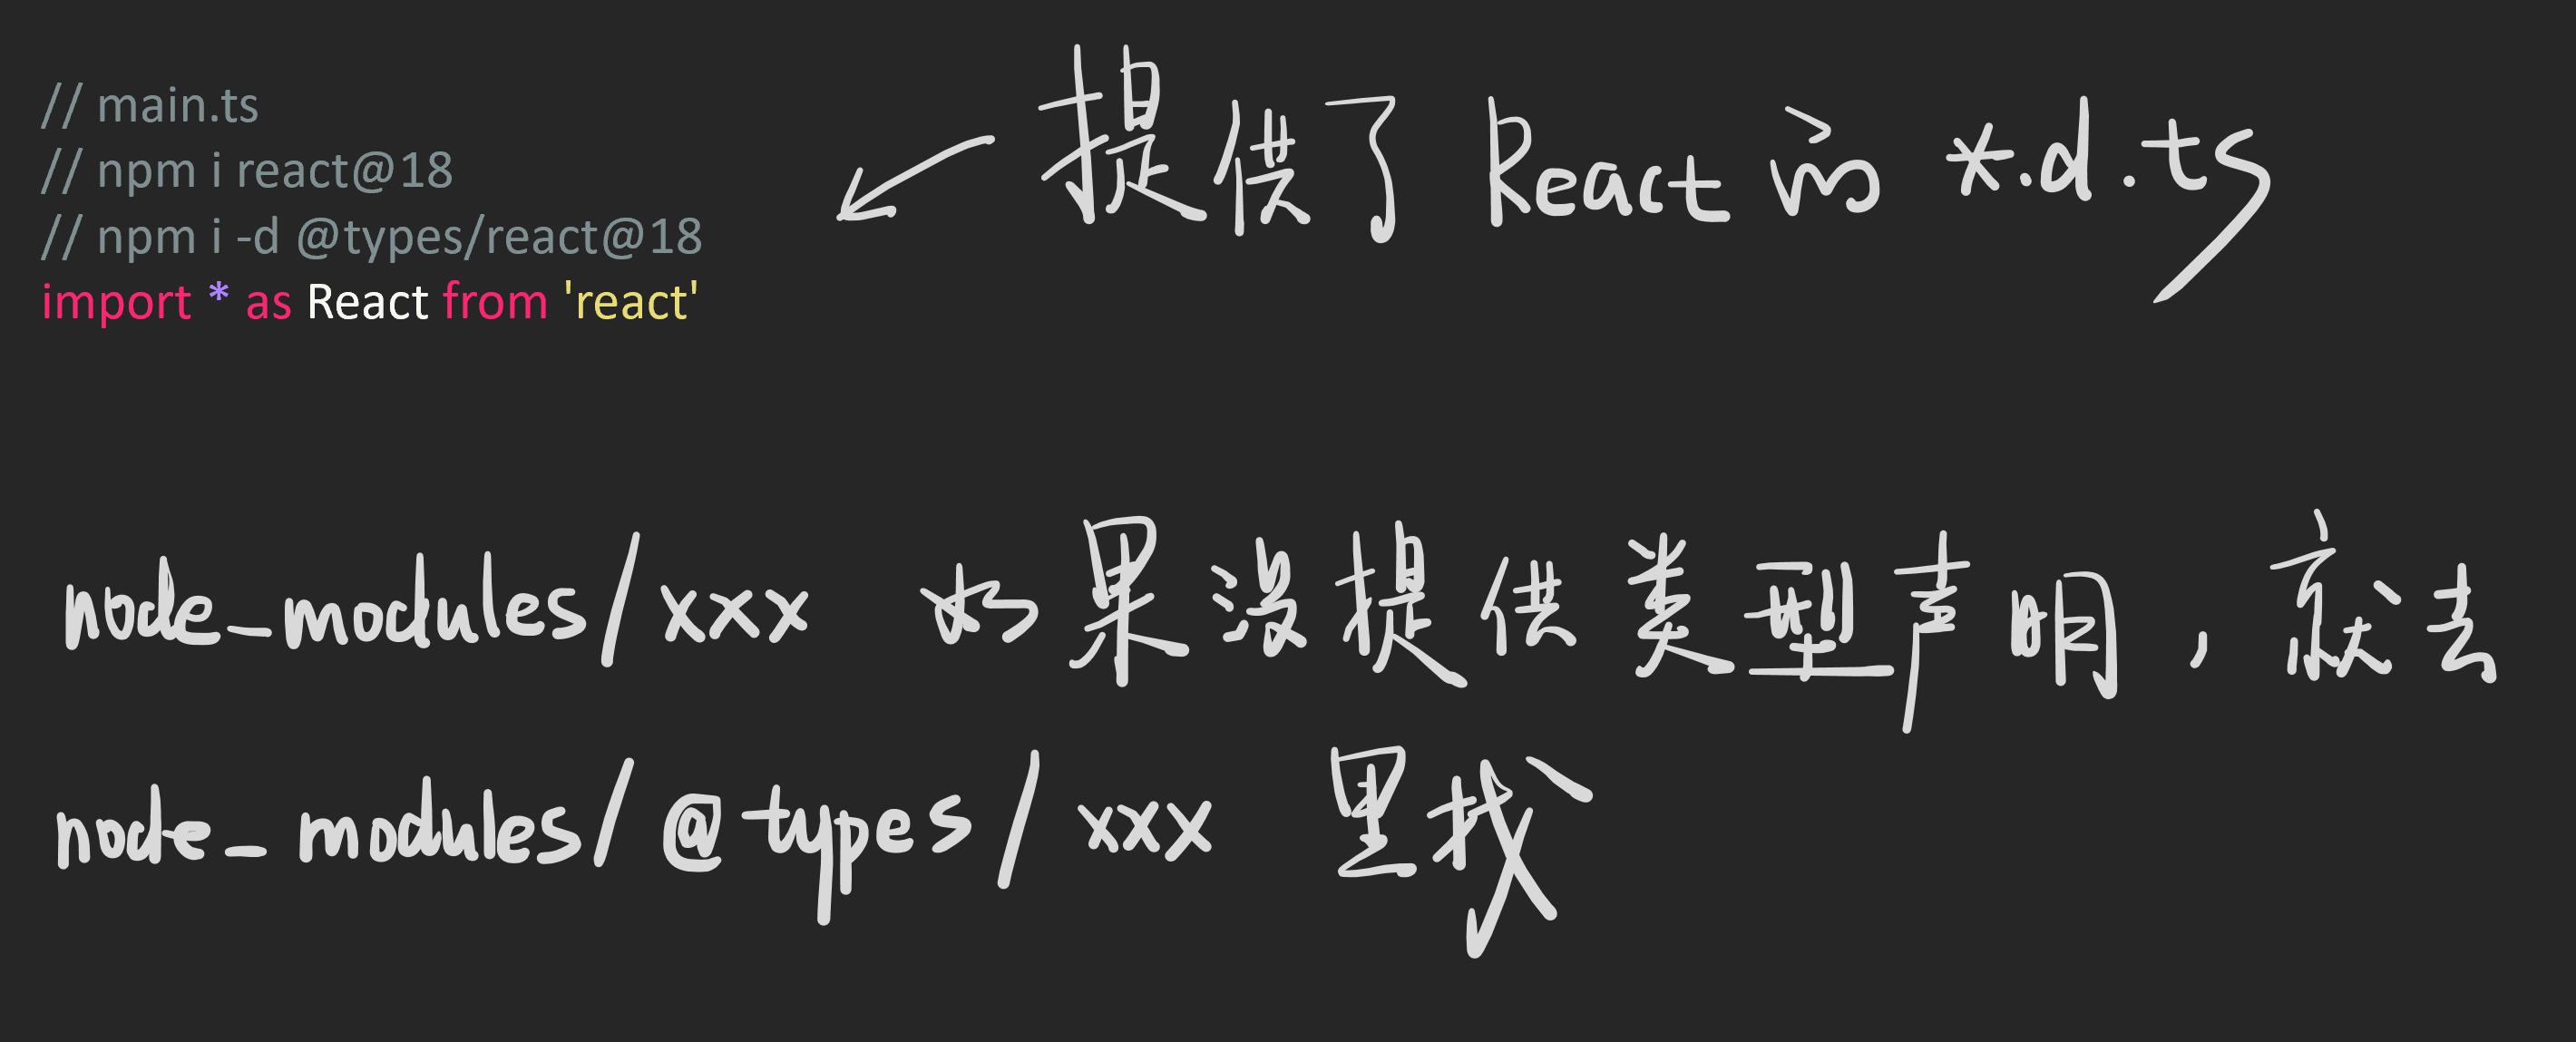 // main.ts
// npm i react@18
// npm i -d @types/react@18
import * as React from 'react'
提供了 React 的 *.d.ts
node_modules/xxx 如果没提供类型声明，就去
node_modules/@types/xxx 里找